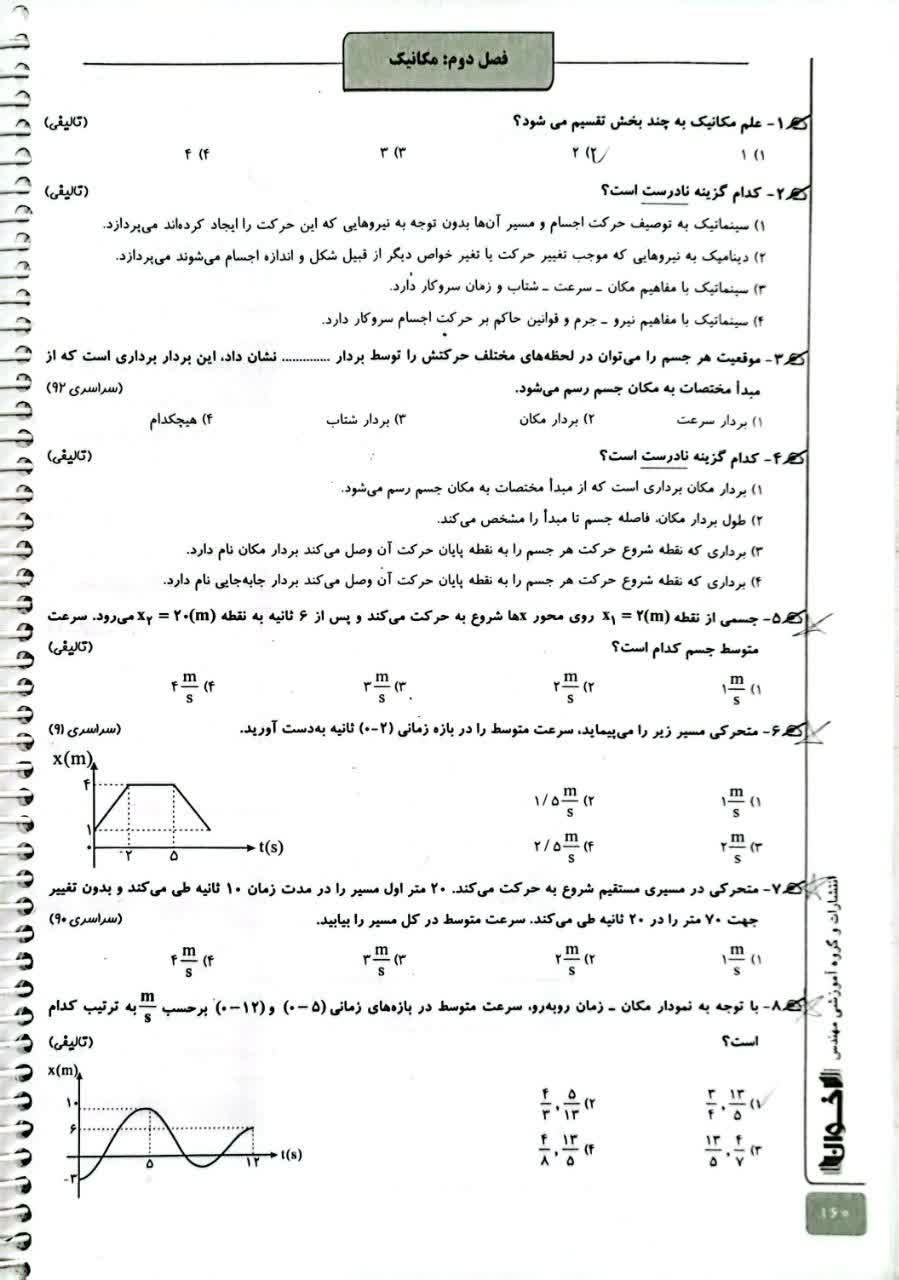 فصل دوم: مکانیک
۱- علم مکانیک به چند بخش تقسیم می شود؟ (تالیفی)
۱) ۱ ۲) ۲ ۳) ۳ ۴) ۴
۲- کدام گزینه نادرست است؟ (تالیفی)
۱) سینماتیک به توصیف حرکت اجسام و مسیر آن‌ها بدون توجه به نیروهایی که این حرکت را ایجاد کرده‌اند می‌پردازد.
۲) دینامیک به نیروهایی که موجب تغییر حرکت یا تغیر خواص دیگر از قبیل شکل و اندازه اجسام می‌شوند می‌پردازد.
۳) سینماتیک با مفاهیم مکان ـ سرعت ـ شتاب و زمان سروکار دارد.
۴) سینماتیک با مفاهیم نیرو ـ جرم و قوانین حاکم بر حرکت اجسام سروکار دارد.
۳- موقعیت هر جسم را می‌توان در لحظه‌های مختلف حرکتش را توسط بردار ............. نشان داد، این بردار برداری است که از
مبدأ مختصات به مکان جسم رسم می‌شود. (سراسری ۹۲)
۱) بردار سرعت ۲) بردار مکان ۳) بردار شتاب ۴) هیچکدام
۴- کدام گزینه نادرست است؟ (تالیفی)
۱) بردار مکان برداری است که از مبدأ مختصات به مکان جسم رسم می‌شود.
۲) طول بردار مکان، فاصله جسم تا مبدأ را مشخص می‌کند.
۳) برداری که نقطه شروع حرکت هر جسم را به نقطه پایان حرکت آن وصل می‌کند بردار مکان نام دارد.
۴) برداری که نقطه شروع حرکت هر جسم را به نقطه پایان حرکت آن وصل می‌کند بردار جابه‌جایی نام دارد.
۵- جسمی از نقطه x₁ = ۲(m) روی محور xها شروع به حرکت می‌کند و پس از ۶ ثانیه به نقطه x₂ = ۲۰(m) می‌رود. سرعت
متوسط جسم کدام است؟ (تالیفی)
۱) ۱ m/s ۲) ۲ m/s ۳) ۳ m/s ۴) ۴ m/s
۶- متحرکی مسیر زیر را می‌پیماید، سرعت متوسط را در بازه زمانی (۲-۰) ثانیه به‌دست آورید. (سراسری ۹۱)
x(m)
۴
۱) ۱ m/s ۲) ۱/۵ m/s
۱
۳) ۲ m/s ۴) ۲/۵ m/s
۰ ۲ ۵ t(s)
۷- متحرکی در مسیری مستقیم شروع به حرکت می‌کند. ۲۰ متر اول مسیر را در مدت زمان ۱۰ ثانیه طی می‌کند و بدون تغییر
جهت ۷۰ متر را در ۲۰ ثانیه طی می‌کند. سرعت متوسط در کل مسیر را بیابید. (سراسری ۹۰)
۱) ۱ m/s ۲) ۲ m/s ۳) ۳ m/s ۴) ۴ m/s
۸- با توجه به نمودار مکان ـ زمان روبه‌رو، سرعت متوسط در بازه‌های زمانی (۵-۰) و (۱۲-۰) برحسب m/s به ترتیب کدام
است؟ (تالیفی)
x(m)
۱۰
۶
۱) ۱۳/۵ , ۳/۴ ۲) ۵/۱۳ , ۴/۳
۳) ۴/۷ , ۱۳/۵ ۴) ۱۳/۵ , ۴/۸
۵ ۱۲ t(s)
-۳
انتشارات و گروه آموزشی مهندس
اخوان